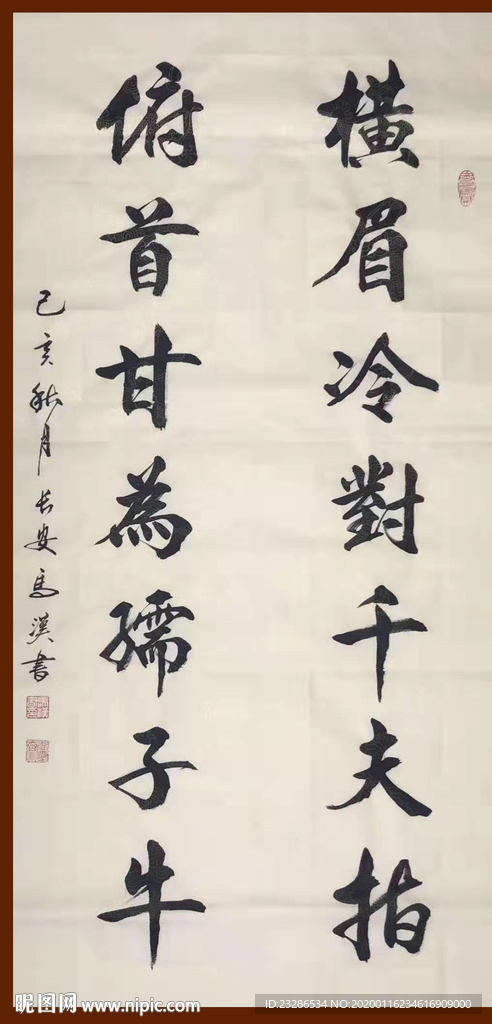 橫眉冷對千夫指
俯首甘為孺子牛
己亥秋月長安馬漢書
昵图网 www.nipic.com
ID:23286534 NO:20200116234616909000